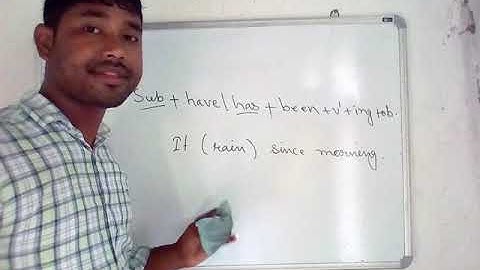 Sub + have/has + been + v' + ing + ob.
It (rain) since mowrning.